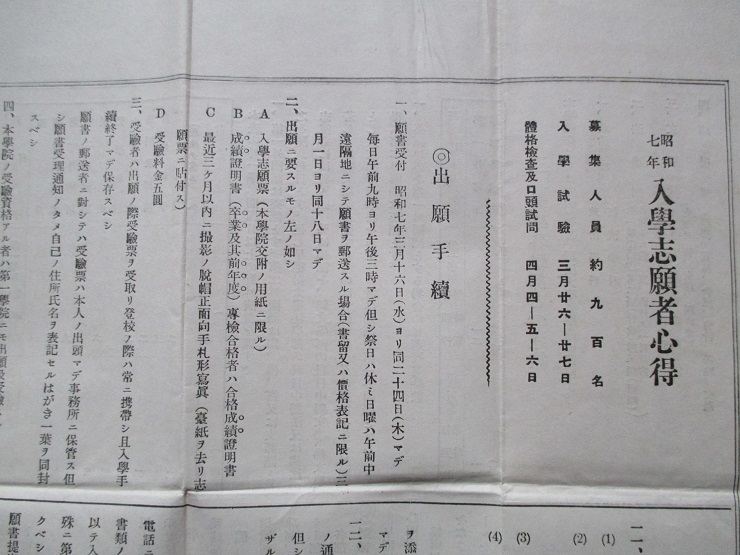 昭和
七年
入學志願者心得
募集人員約九百名
入學試驗 三月廿六―廿七日
體格檢査及口頭試問 四月四―五―六日
◎出願手續
一、願書受付 昭和七年三月十六日(水)ヨリ同二十四日(木)マデ
毎日午前九時ヨリ午後三時マデ但シ祭日ハ休ミ日曜ハ午前中
遠隔地ニシテ願書ヲ郵送スル場合(書留又ハ價格表記ニ限ル)三
月一日ヨリ同十八日マデ
二、出願ニ要スルモノ左ノ如シ
A 入學志願票(本學院交附ノ用紙ニ限ル)
B 成績證明書(卒業及其前年度)專檢合格者ハ合格成績證明書
C 最近三ケ月以内ニ撮影ノ脫帽正面向手札形寫眞(臺紙ヲ去リ志
願票ニ貼付ス)
D 受驗料金五圓
三、受驗者ハ出願ノ際受驗票ヲ受取リ登校ノ際ハ常ニ携帶シ且入學手
續終了マデ保存スベシ
願書ノ郵送者ニ對シテハ受驗票ハ本人ノ出頭マデ事務所ニ保管ス但
シ願書受理通知ノタメ自己ノ住所氏名ヲ表記セルはがき一葉ヲ同封
スベシ
四、本學院ノ受驗資格アル者ハ第一學院ニモ出願
一一、
(1)
(2)
(3)
(4)
ヲ添
マデ
一二、
ノ通
但シ
ザル
電話ニ
書類ノ
以テ入
殊ニ第
クベシ
願書提